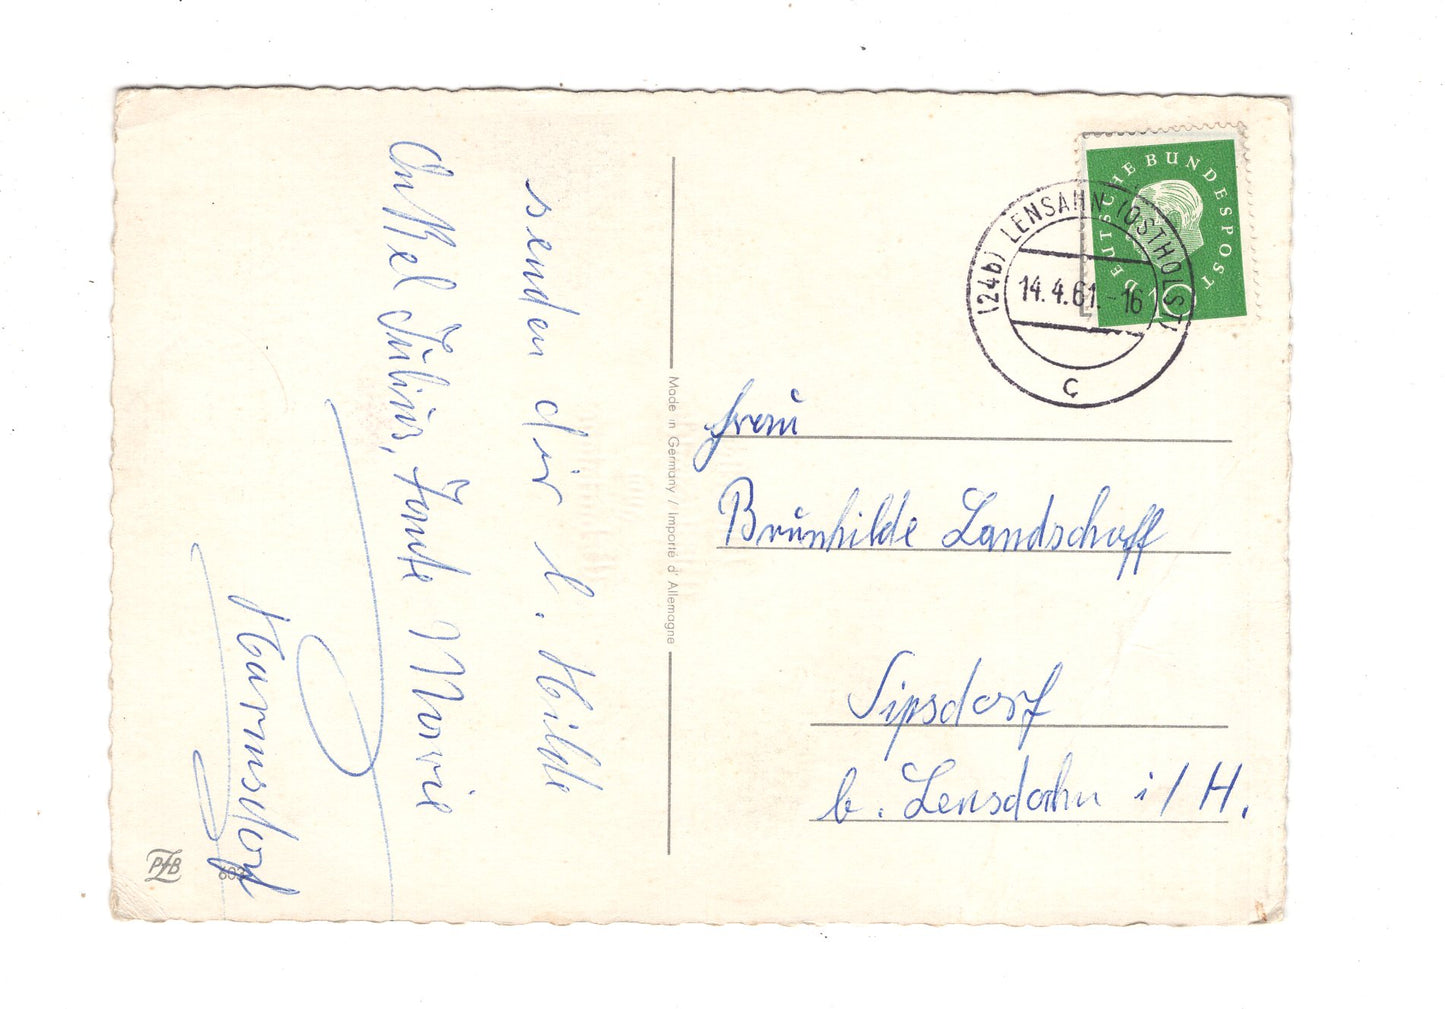 senden dir l. Hilde
Onkel Julius, Tante Marie
Harmsdorf
PFB
Made in Germany / Importé d'Allemagne
DEUTSCHE BUNDESPOST
10
(24b) LENSAHN (OSTHOLST)
14.4.61.-16
c
Frau
Brunhilde Landschoff
Sipsdorf
b. Lensdahn i/H.